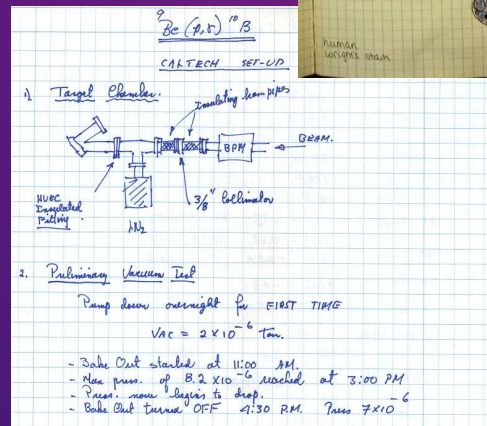 ⁹Be (p,γ) ¹⁰B
CALTECH SET-UP
human
wright's stain
1) Target Chamber.
Insulating beam pipes
BPM
BEAM.
HVEC
Insulated
Fitting
3/8" Collimator
LN₂
2. Preliminary Vacuum Test
Pump down overnight for FIRST TIME
VAC = 2 x 10⁻⁶ Torr.
- Bake Out started at 11:00 AM.
- Max press. of 8.2 x 10⁻⁶ reached at 3:00 PM
- Press. now begins to drop.
- Bake Out turned OFF 4:30 P.M. Press 7x10⁻⁶